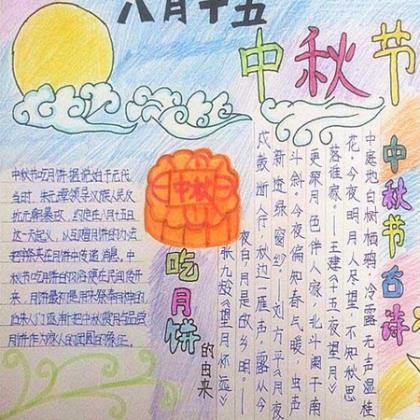 八月十五
中秋节
中秋
吃月饼的由来
中秋节吃月饼据说始于元代
当时，朱元璋领导汉族人民反
抗元朝暴政，约定在八月十五日
这一天起义，以互赠月饼的办法
把字条夹在月饼中传递消息。中
秋节吃月饼的习俗便在民间传开
来。月饼最初是用来祭奉月神的
后来人们逐渐把中秋赏月与品尝
月饼作为家人的团圆的象征。
中秋节古诗
中庭地白树栖鸦，冷露无声湿桂
花。今夜明月人尽望，不知秋思
落谁家——王建《十五夜望月》
更深月色伴人家，北斗阑干南
斗斜。今夜偏知春气暖，虫声
新透绿窗纱。——刘方平《月夜》
戍鼓断人行，秋边一雁声。露从今
夜白，月是故乡明。——
张九龄《望月怀远》